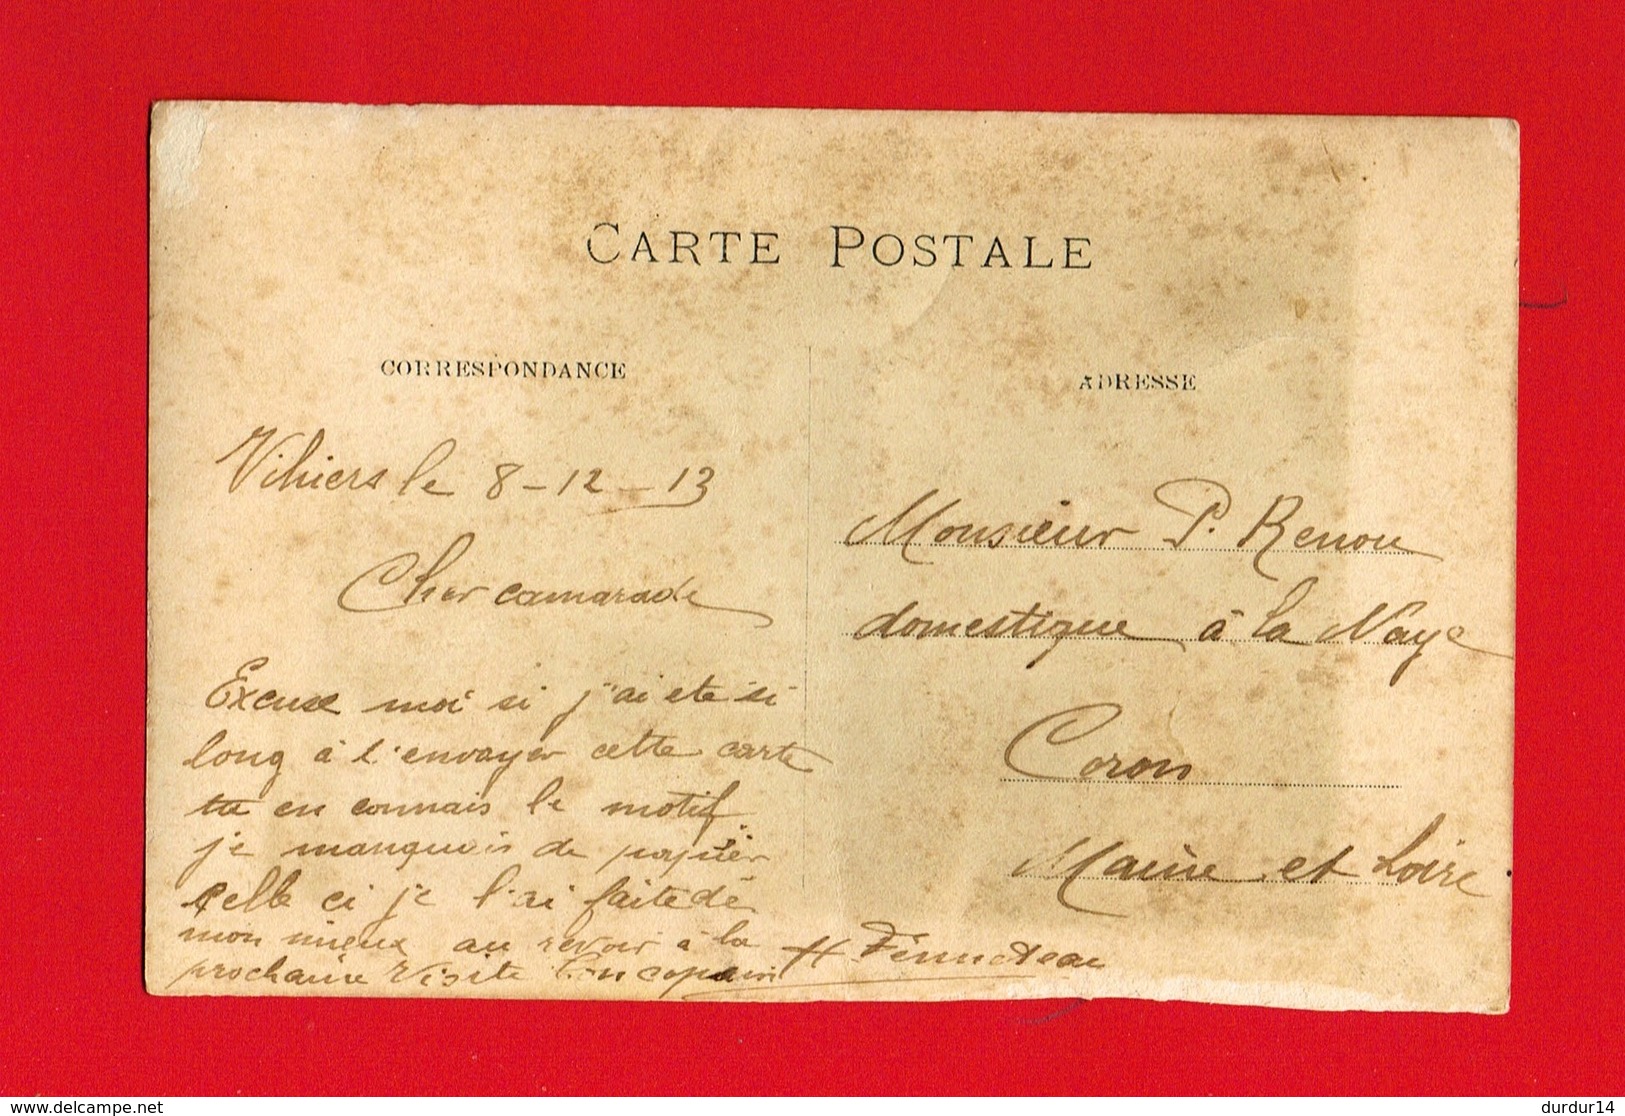 CARTE POSTALE
CORRESPONDANCE
Vihiers le 8-12-13
Cher camarade
Excuse moi si j'ai ete si
long à l'envoyer cette carte
tu en connais le motif
je manquais de papier
celle ci je l'ai faite de
mon mieux au revoir à la
prochaine visite ton copain H
ADRESSE
Monsieur P. Renou
domestique à la Naye
Coron
Maine et Loire
www.delcampe.net
durdur14